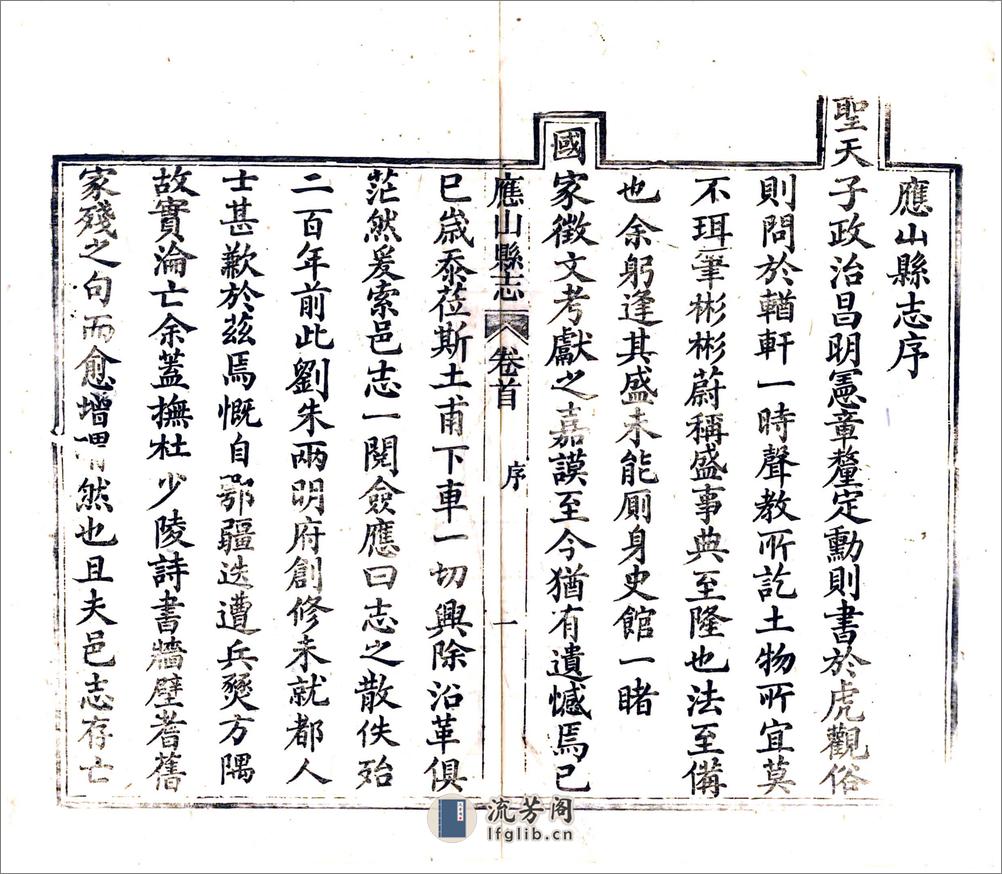 應山縣志序
聖天子政治昌明憲章釐定勳則書於虎觀俗
則問於輶軒一時聲教所訖土物所宜莫
不珥筆彬彬蔚稱盛事典至隆也法至備
也余躬逢其盛未能厠身史館一睹
國家徵文考獻之嘉謨至今猶有遺憾焉已
應山縣志 卷首 序 一
巳嵗忝莅斯土甫下車一切興除沿革俱
茫然爰索邑志一閱僉應曰志之散佚殆
二百年前此劉朱兩明府創修未就都人
士甚歉於茲焉慨自鄂疆迭遭兵燹方隅
故實淪亡余蓋撫杜少陵詩書牆壁耆舊
家殘之句而愈增喟然也且夫邑志存亡
流芳阁
lfglib.cn